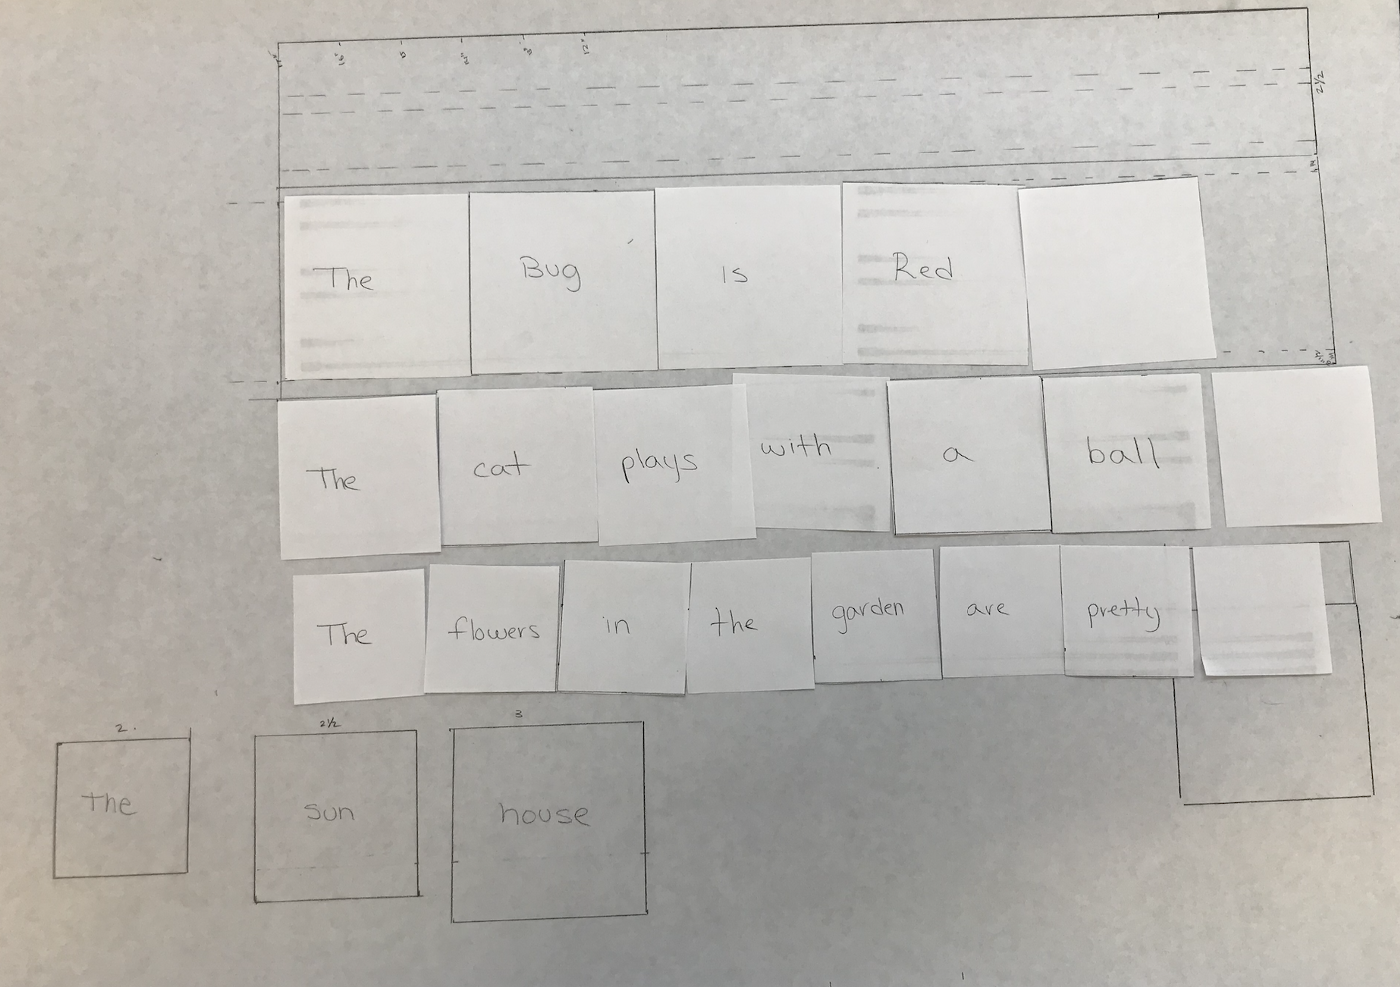 2½
The Bug is Red
The cat plays with a ball
The flowers in the garden are pretty
2. 2½ 3
The sun house